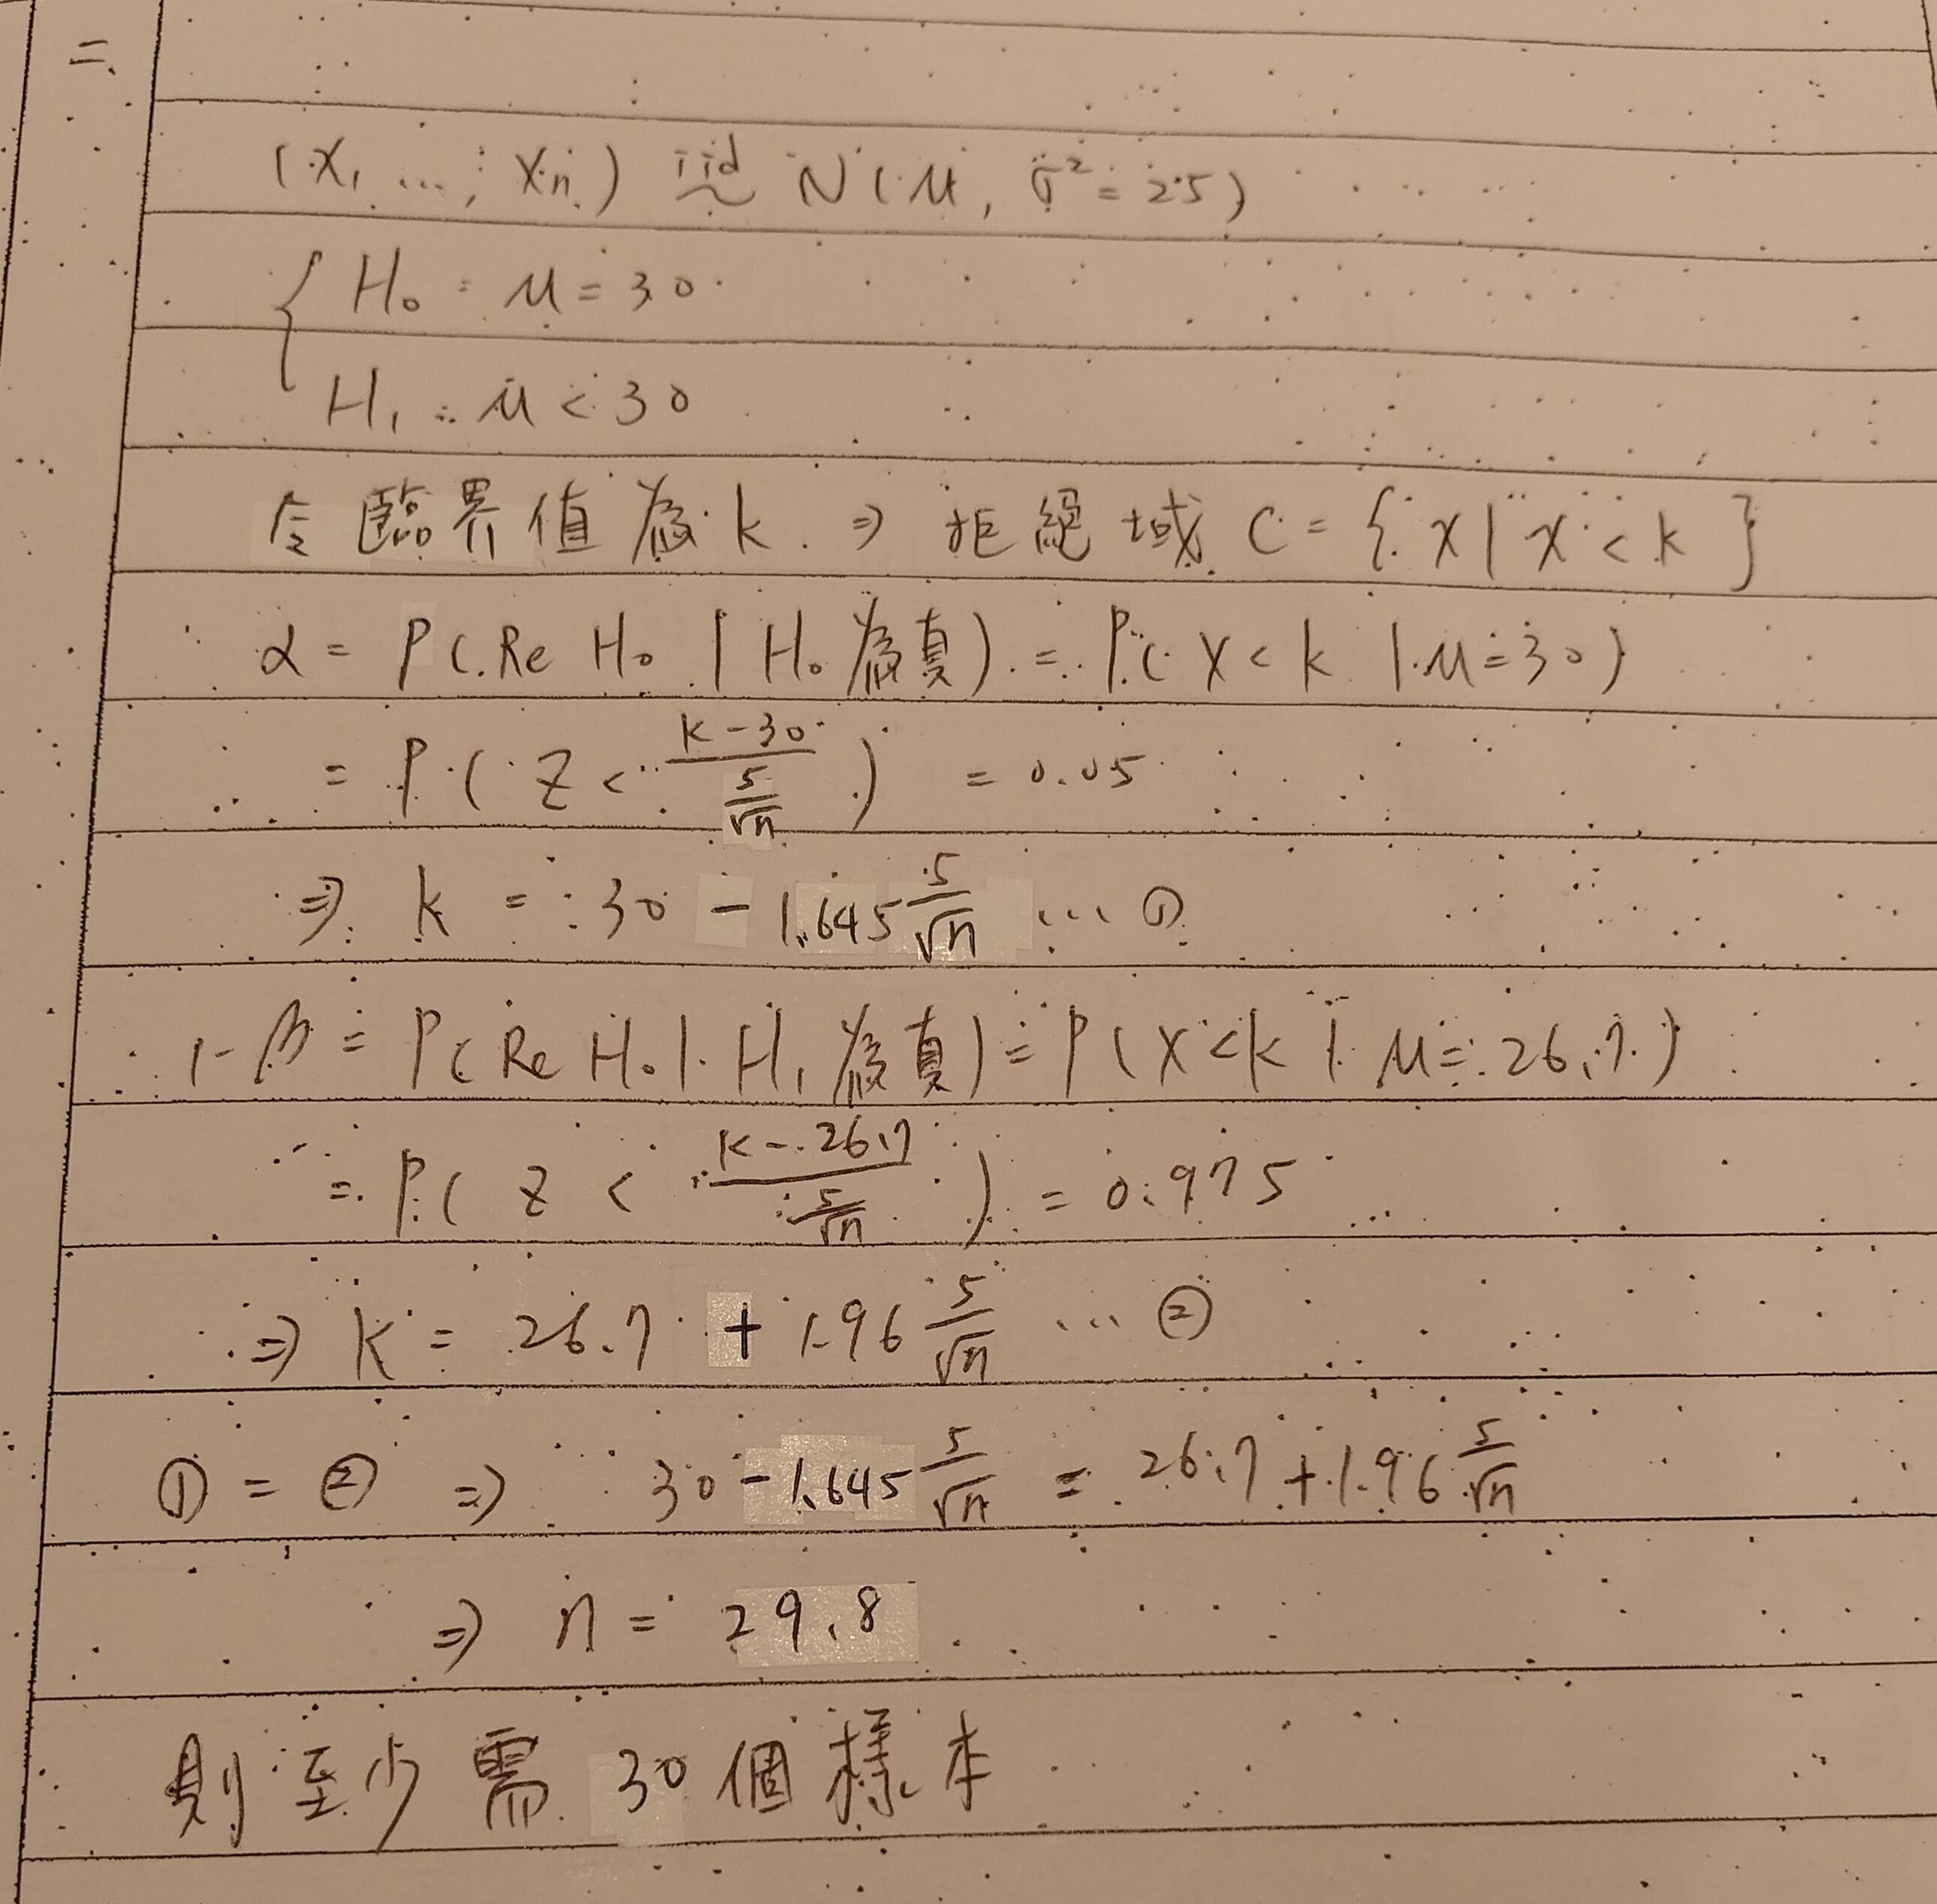 二、
(X₁ ..., Xn) iid ~ N(μ, σ² = 25)
{ H₀ : μ = 30
H₁ : μ < 30
令臨界值為 k ⇒ 拒絕域 C = { x | x < k }
α = P( Re H₀ | H₀ 為真 ) = P( X < k | μ = 30 )
= P( Z < (k - 30) / (5/√n) ) = 0.05
⇒ k = 30 - 1.645 5/√n ... ①
1 - β = P( Re H₀ | H₁ 為真 ) = P( X < k | μ = 26.7 )
= P( Z < (k - 26.7) / (5/√n) ) = 0.975
⇒ k = 26.7 + 1.96 5/√n ... ②
① = ② ⇒ 30 - 1.645 5/√n = 26.7 + 1.96 5/√n
⇒ n = 29.8
則至少需 30 個樣本